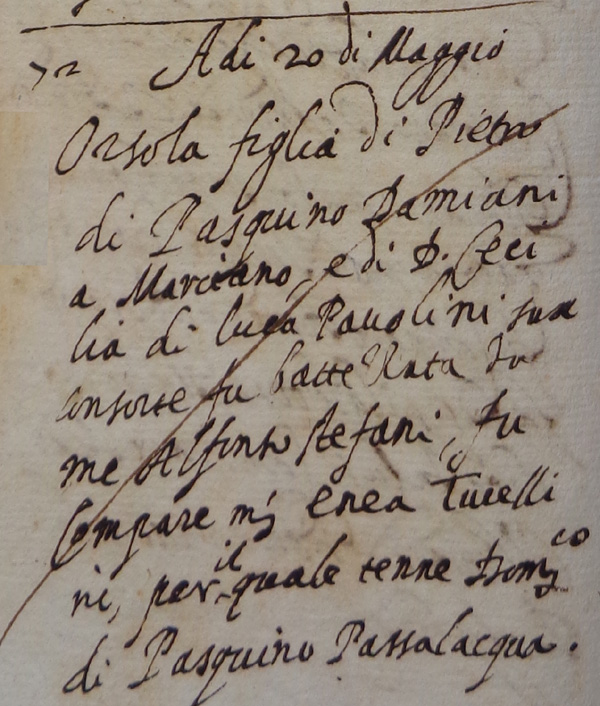 72 Adi 20 di Maggio
Orsola figlia di Pietro
di Pasquino Damiani
a Marciano, e di D. Ceci
lia di Luca Pauolini sua
consorte fu battezzata da
me Alfonso Stefani, fu
Compare mʒ Enea Tucelli
ni, per il quale tenne Domᶜᵒ
di Pasquino Passalacqua.